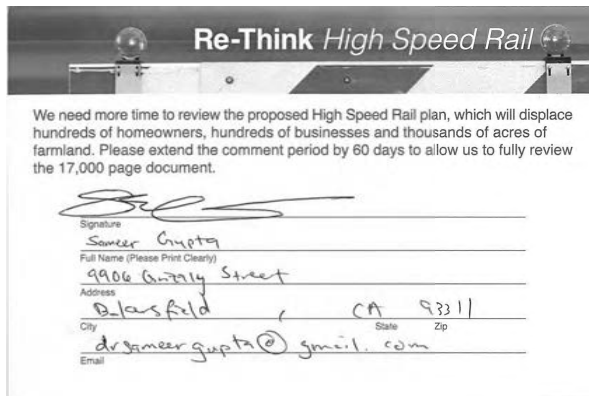 Re-Think High Speed Rail
We need more time to review the proposed High Speed Rail plan, which will displace
hundreds of homeowners, hundreds of businesses and thousands of acres of
farmland. Please extend the comment period by 60 days to allow us to fully review
the 17,000 page document.
Signature
Sameer Gupta
Full Name (Please Print Clearly)
9906 Grizzly Street
Address
Bakersfield, CA 93311
City State Zip
drsameergupta@gmail.com
Email